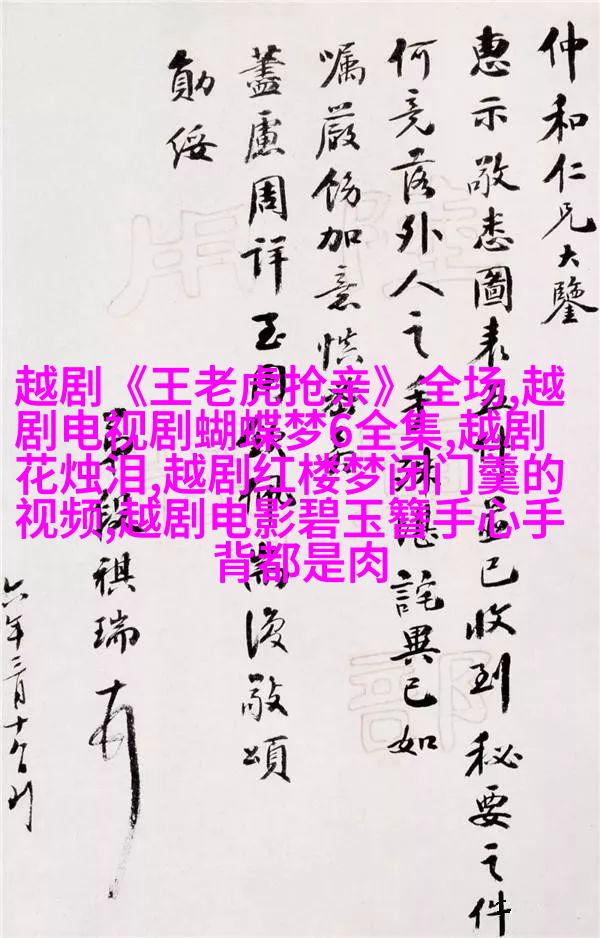 仲和仁兄大鑒
惠示敬悉圖表五件並已收到秘要之件
何竟落外人之手殊堪詫異已如
囑嚴飭加意慎密
藎慮周詳至用欽佩耑復敬頌
勛綏
弟段祺瑞
六年三月十
越剧《王老虎抢亲》全场,越
剧电视剧蝴蝶梦6全集,越剧
花烛泪,越剧红楼梦闭门羹的
视频,越剧电影碧玉簪手心手
背都是肉